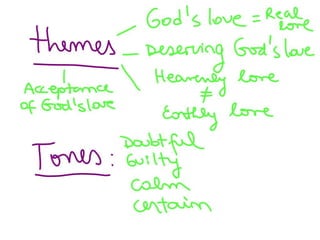 God's love = Real love
themes
Deserving God's love
Heavenly love
≠
Earthly love
Acceptance
of God's love
Tones:
Doubtful
Guilty
Calm
Certain